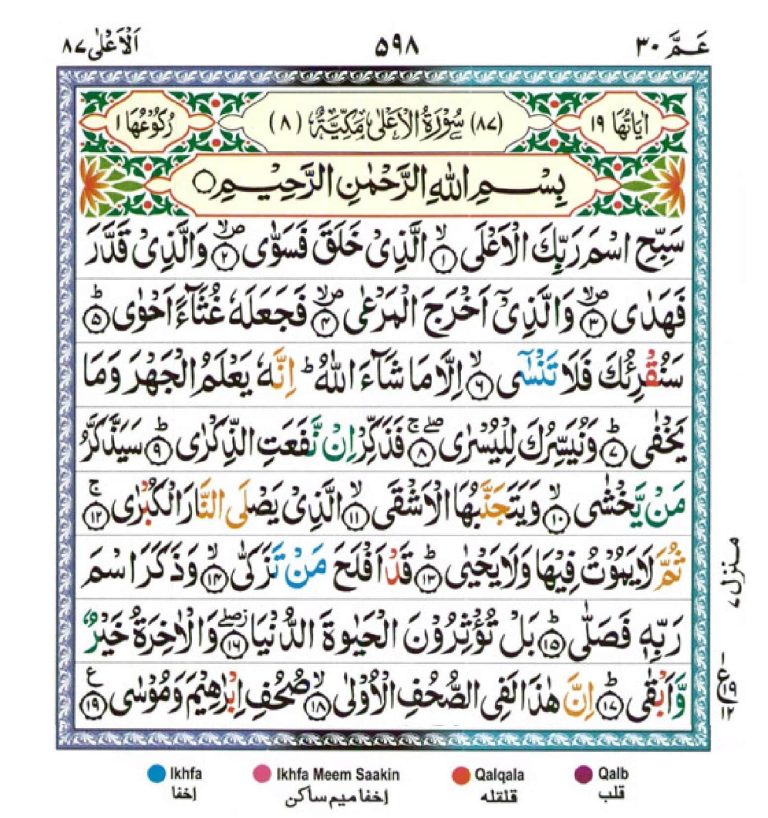 عَمَّ ٣٠
٥٩٨
اَلْاَعْلٰى ٨٧
اٰيَاتُهَا ١٩
(٨٧) سُوْرَةُ الْاَعْلٰى مَكِّيَّةٌ (٨)
رُكُوْعُهَا ١
بِسْمِ اللّٰهِ الرَّحْمٰنِ الرَّحِيْمِ
سَبِّحِ اسْمَ رَبِّكَ الْاَعْلَى ۙ﴿١﴾ الَّذِىْ خَلَقَ فَسَوّٰى ۪ۙ﴿٢﴾ وَالَّذِىْ قَدَّرَ
فَهَدٰى ۪ۙ﴿٣﴾ وَالَّذِىْۤ اَخْرَجَ الْمَرْعٰى ۪ۙ﴿٤﴾ فَجَعَلَهٗ غُثَآءً اَحْوٰى ؕ﴿٥﴾
سَنُقْرِئُكَ فَلَا تَنْسٰٓى ۙ﴿٦﴾ اِلَّا مَا شَآءَ اللّٰهُ ؕ اِنَّهٗ يَعْلَمُ الْجَهْرَ وَمَا
يَخْفٰى ؕ﴿٧﴾ وَنُيَسِّرُكَ لِلْيُسْرٰى ۖۚ﴿٨﴾ فَذَكِّرْ اِنْ نَّفَعَتِ الذِّكْرٰى ؕ﴿٩﴾ سَيَذَّكَّرُ
مَنْ يَّخْشٰى ۙ﴿١٠﴾ وَيَتَجَنَّبُهَا الْاَشْقَى ۙ﴿١١﴾ الَّذِىْ يَصْلَى النَّارَ الْكُبْرٰى ۚ﴿١٢﴾
ثُمَّ لَا يَمُوْتُ فِيْهَا وَلَا يَحْيٰى ؕ﴿١٣﴾ قَدْ اَفْلَحَ مَنْ تَزَكّٰى ۙ﴿١٤﴾ وَذَكَرَ اسْمَ
رَبِّهٖ فَصَلّٰى ؕ﴿١٥﴾ بَلْ تُؤْثِرُوْنَ الْحَيٰوةَ الدُّنْيَا ۖ﴿١٦﴾ وَالْاٰخِرَةُ خَيْرٌ
وَّاَبْقٰى ؕ﴿١٧﴾ اِنَّ هٰذَا لَفِى الصُّحُفِ الْاُوْلٰى ۙ﴿١٨﴾ صُحُفِ اِبْرٰهِيْمَ وَمُوْسٰى ﴿١٩﴾ ع
منزل ٧
ع ١٩ ١٢
Ikhfa
إخفا
Ikhfa Meem Saakin
إخفا ميم ساكن
Qalqala
قلقله
Qalb
قلب